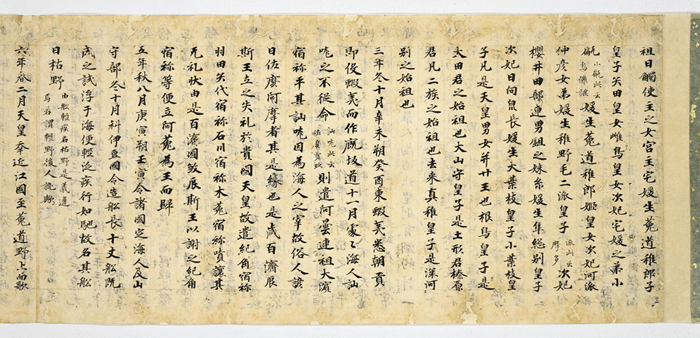 祖日觸使主之女宮主宅媛生菟道稚郎子
皇子矢田皇女雌鳥皇女次妃宅媛之弟小
甂媛生菟道稚郎姫皇女次妃河派
仲彦女弟媛生稚野毛二派皇子派此云摩多次妃
櫻井田部連男鉏之妹糸媛生隼総別皇子
次妃日向泉長媛生大葉枝皇子小葉枝皇
子凡是天皇男女并廿王也根鳥皇子是
大田君之始祖也大山守皇子是土形君榛原
君凡二族之始祖也去来真稚皇子是深河
別之始祖也
三年冬十月辛未朔癸酉東蝦夷悉朝貢
即役蝦夷而作厩坂道十一月處々海人訕
哤之不従命則遣阿曇連祖大濱
宿祢平其訕哤因為海人之宰故俗人諺
曰佐麼阿摩者其是縁也是歳百濟辰
斯王立之失礼於貴國天皇故遣紀角宿祢
羽田矢代宿祢石川宿祢木菟宿祢嘖讓其
无礼状由是百濟國殺辰斯王以謝之紀角
宿祢等便立阿花為王而歸
五年秋八月庚寅朔壬寅令諸國定海人及山
守部冬十月科伊豆國令造舩長十丈舩既
成之試浮于海便軽泛疾行如馳故名其舩
曰枯野由舩軽疾名枯野是義違焉若謂軽野後人訛歟
六年春二月天皇幸近江國至菟道野上而歌